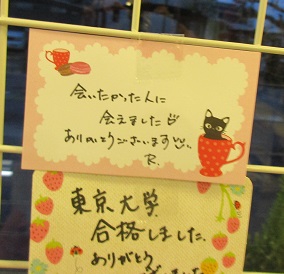 会いたかった人に
会えました
ありがとうございます
R.
東京大学
合格しました、
ありがとう